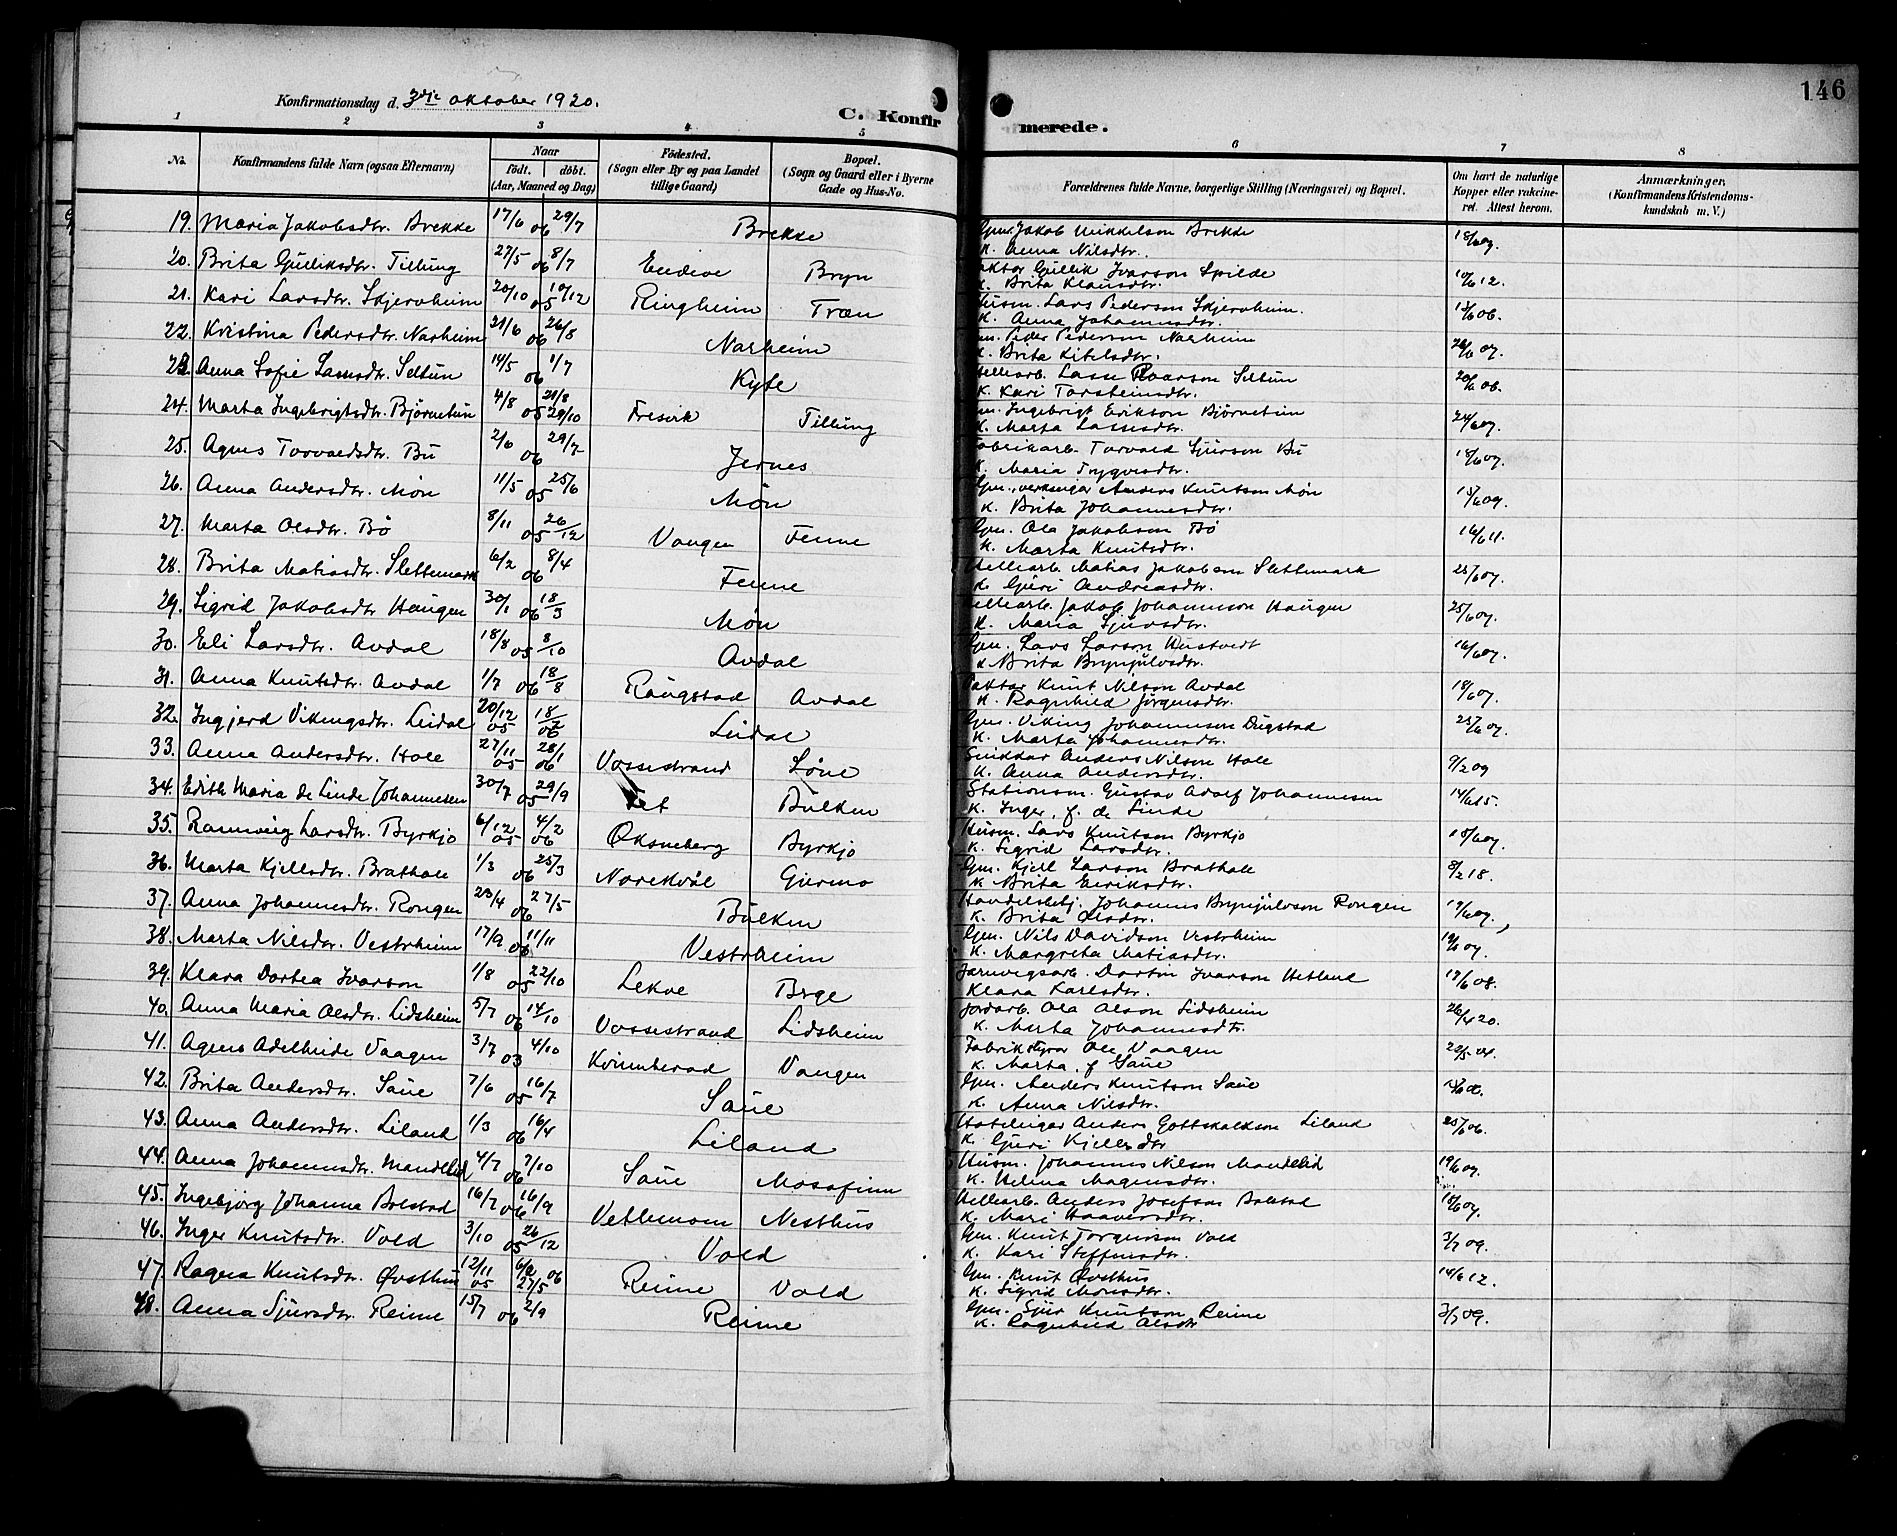 146
Konfirmationsdag d. 3die oktober 1920.
C. Konfirmerede.
1 2 3 4 5 6 7 8
No.
Konfirmandens fulde Navn (ogsaa Efternavn)
Naar
født. døbt.
(Aar, Maaned og Dag)
Fødested.
(Sogn eller By og paa Landet
tillige Gaard)
Bopæl.
(Sogn og Gaard eller i Byerne
Gade og Hus-No.
Forældrenes fulde Navne, borgerlige Stilling (Næringsvei) og Bopæl.
Om havt de naturlige
Kopper eller vakcine-
ret. Attest herom.
Anmærkninger.
(Konfirmandens Kristendoms-
kundskab m. V.)
19. Maria Jakobsdtr. Brekke 17/6 06 29/7 Brekke Gm. Jakob Mikkelson Brekke 18/6 07.
K. Anna Nilsdtr.
20. Brita Gulliksdtr. Tillung 27/5 06 8/7 Endeve Bryn Gullik Ivarson Spilde 10/6 12.
K. Brita Klausdtr.
21. Kari Larsdtr. Skjervheim 20/10 05 10/12 Ringheim Træn Husm. Lars Pederson Skjervheim. 13/6 06.
K. Anna Johannesdtr.
22. Kristina Pedersdtr. Narheim 21/6 06 26/8 Narheim Gm. Peder Pederson Narheim 26/6 07.
K. Brita Kitelsdtr.
23. Anna Sofie Lassesdtr. Seltun 14/5 06 1/7 Kyte Lasse Seltun 20/6 06.
K. Kari Torsteinsdtr.
24. Marta Ingebrigtsdtr. Bjørnetun 4/8 05 21/8 29/10 Fresvik Tillung Gm. Ingebrigt Erikson Bjørnetun 24/6 07.
K. Marta Lassesdtr.
25. Agnes Torvaldsdtr. Bu 2/6 06 29/7 Jernes Fabrikarb. Torvald Sjurson Bu 18/6 07.
K. Maria Trygvesdtr.
26. Anna Andersdtr. Møn 11/5 05 25/6 Møn Gm., Anders Knutson Møn 15/6 09.
K. Brita Johannesdtr.
27. Marta Olsdtr. Bø 8/11 05 26/12 Vangen Fenne Gm. Ola Jakobson Bø 16/6 11.
K. Marta Knutsdtr.
28. Brita Matiasdtr. Slettemark 6/2 06 8/4 Fenne Hellearb. Matias Jakobson Slettemark 25/6 07.
K. Guri Andreasdtr.
29. Sigrid Jakobsdtr Haugen 30/1 06 18/3 Møn Hellearb. Jakob Johanneson Haugen 25/6 07.
K. Maria Sjursdtr.
30. Eli Larsdtr. Avdal 18/8 05 8/10 Avdal Gm. Lars Larson 16/6 07.
K. Brita Brynjulvsdtr.
31. Anna Knutsdtr. Avdal 1/7 06 18/8 Raugstad Avdal Paktar Knut Nilson Avdal 18/6 07.
K. Ragnhild Jørgensdtr.
32. Ingjerd Vikingsdtr. Lidal 20/12 05 18/2 06 Lidal Gm. Viking Johanneson Dugstad 25/6 07.
K. Marta Johannesdtr.
33. Anna Andersdtr. Hole 27/11 05 28/1 06 Vossestrand Løne Snikkar Anders Nilson Hole 9/2 09
K. Anna Andersdtr.
34. Edith Maria de Linde Johannesen 30/7 05 29/9 Fet Bulken Stationsm. Gustav Adolf Johannesen 14/6 15.
K. Inger, f. de Linde
35. Rannveig Larsdtr. Byrkjo 6/12 05 4/2 06 Øksneberg Byrkjo Husm. Lars Knutson Byrkjo 18/6 07.
K. Sigrid Larsdtr.
36. Marta Kjellsdtr. Brathole 1/3 06 25/3 Norekvål Gjermo Gm. Kjell Larson Brathole 8/2 18.
K. Brita Eiriksdtr.
37. Anna Johannesdtr. Rongen 23/4 06 27/5 Bulken Handelsbetj. Johannes Brynjulvson Rongen 17/6 07,
K. Brita Olsdtr.
38. Marta Nilsdtr. Vestrheim 17/9 06 11/11 Vestrheim Gm. Nils Davidson Vestrheim 19/6 07.
K. Margreta Matiasdtr.
39. Klara Dortea Ivarson 1/8 05 22/10 Lekve Bryge Jarnvegsarb. Dortin Ivarson Hetland 17/6 08.
Klara Karlsdtr.
40. Anna Maria Olsdtr. Lidsheim 5/7 06 14/10 Vossestrand Lidsheim Jordarb. Ola Olson Lidsheim 26/4 20.
K. Marta Johannesdtr.
41. Agnes Adelheide Vaagen 3/7 03 4/10 Kvinnherad Vangen Fabrikstyrar Ole Vaagen 20/5 04.
K. Marta, f Saue
42. Brita Andersdtr. Saue 7/6 05 16/7 Saue Gm. Anders Knutson Saue
K. Anna Nilsdtr.
43. Anna Andersdtr. Liland 1/3 06 16/4 Liland Anders Gottskalkson Liland 25/6 06.
K. Guri Kjellsdtr
44. Anna Johannesdtr. Mandelid 4/7 06 7/10 Saue Mossafinn Husm. Johannes Nilson Mandelid 19/6 07.
K. Helena Magnesdtr.
45. Ingebjørg Johanna Bolstad 16/7 06 16/9 Vetlemom Nesthus Hellearb. Anders Josefson Bolstad 18/6 07.
K. Mari Haavarsdtr.
46. Inger Knutsdtr. Vold 3/10 05 26/12 Vold Gm. Knut Torgerson Vold 3/7 09.
K. Kari Steffensdtr.
47. Ragna Knutsdtr. Øvsthus 12/11 05 6/2 06 27/5 Reime Vold Gm. Knut Øvsthus 14/6 12.
K. Sigrid Monsdtr.
48. Anna Sjursdtr. Reime 15/7 06 2/9 Reime Gm. Sjur Knutson Reime 3/7 09.
K. Ragnhild Olsdtr